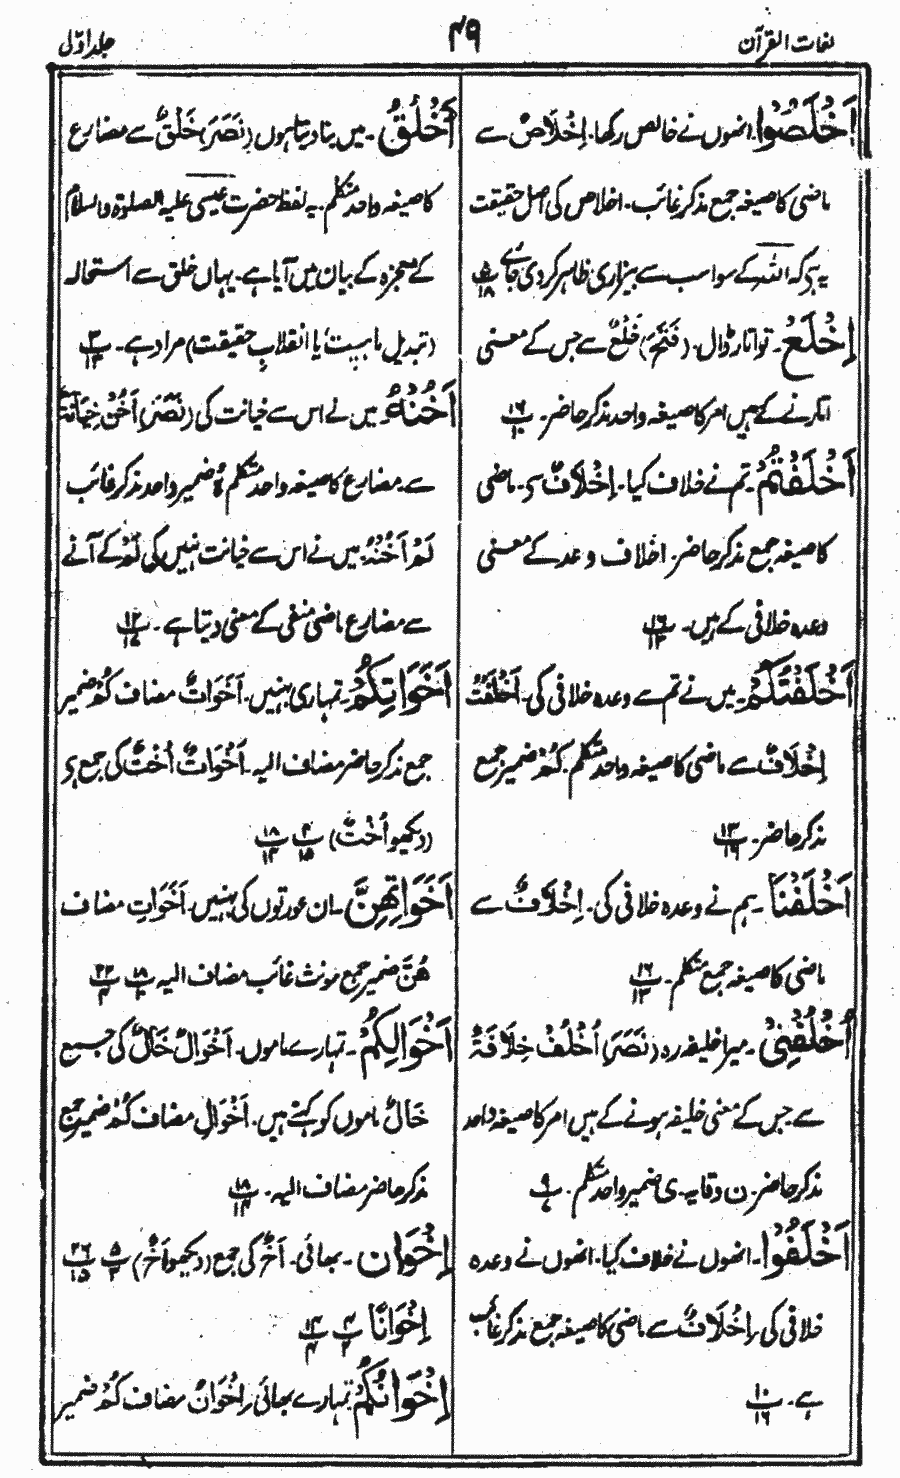 لغات القرآن
۴۹
جلد اوّل
اَخْلَصُوْا۔ انھوں نے خالص رکھا۔ اِخْلَاصٌ سے
ماضی کا صیغہ جمع مذکر غائب۔ اخلاص کی اصل حقیقت
یہ ہے کہ اللہ کے سوا سب سے بیزاری ظاہر کر دی جائے ۵/۱۸
اِخْلَعْ۔ تو اتار ڈال۔ (فَتَحَ) خَلْعٌ سے جس کے معنی
اتارنے کے ہیں امر کا صیغہ واحد مذکر حاضر۔ ۱۶/۱۰
اَخْلَفْتُمْ۔ تم نے خلاف کیا۔ اِخْلَافٌ سے ماضی
کا صیغہ جمع مذکر حاضر۔ اخلاف وعد کے معنی
وعدہ خلافی کے ہیں۔ ۱۶/۱۳
اَخْلَفْتُكُمْ۔ میں نے تم سے وعدہ خلافی کی۔ اَخْلَفْتُ
اِخْلَافٌ سے ماضی کا صیغہ واحد متکلم۔ كُمْ ضمیر جمع
مذکر حاضر۔ ۱۳/۱۶
اَخْلَفْنَا۔ ہم نے وعدہ خلافی کی۔ اِخْلَافٌ سے
ماضی کا صیغہ جمع متکلم۔ ۱۶/۱۳
اُخْلُفْنِيْ۔ میرا خلیفہ رہ (نَصَرَ) اُخْلُفْ خِلَافَةٌ
سے۔ جس کے معنی خلیفہ ہونے کے ہیں امر کا صیغہ واحد
مذکر حاضر۔ ن وقایہ۔ ی ضمیر واحد متکلم۔ ۹/۷
اَخْلَفُوْا۔ انھوں نے خلاف کیا۔ انھوں نے وعدہ
خلافی کی۔ اِخْلَافٌ سے ماضی کا صیغہ جمع مذکر غائب
ہے۔ ۱۰/۱۶
اَخْلُقُ۔ میں بنا دیتا ہوں (نَصَرَ) خَلْقٌ سے مضارع
کا صیغہ واحد متکلم۔ یہ لفظ حضرت عیسیٰ علیہ الصلوٰۃ والسلام
کے معجزہ کے بیان میں آیا ہے۔ یہاں خلق سے استحالہ
(تبدیل ماہیت یا انقلابِ حقیقت) مراد ہے۔ ۳/۱۳
اَخُنْهُ۔ میں نے اس سے خیانت کی (نَصَرَ) اَخُنْ خِيَانَةٌ
سے۔ مضارع کا صیغہ واحد متکلم ہٗ ضمیر واحد مذکر غائب
لَمْ اَخُنْهُ۔ میں نے اس سے خیانت نہیں کی لَمْ کے آنے
سے مضارع ماضی منفی کے معنی دیتا ہے۔ ۱۲/۱۶
اَخَوَاتِكُمْ۔ تمہاری بہنیں۔ اَخَوَاتٌ مضاف كُمْ ضمیر
جمع مذکر حاضر مضاف الیہ۔ اَخَوَاتٌ اُخْتٌ کی جمع ہے
(دیکھو اُخْتٌ) ۴/۱۵ ۱۸/۱۳
اَخَوَاتِهِنَّ۔ ان عورتوں کی بہنیں۔ اَخَوَاتِ مضاف
هُنَّ ضمیر جمع مونث غائب مضاف الیہ ۱۸/ ۲۲/۴
اَخْوَالِكُمْ۔ تمہارے ماموں۔ اَخْوَالٌ خَالٌ کی جمع
خَالٌ ماموں کو کہتے ہیں۔ اَخْوَالِ مضاف كُمْ ضمیر جمع
مذکر حاضر مضاف الیہ۔ ۱۸/۱۴
اِخْوَان۔ بھائی۔ اَخٌ کی جمع (دیکھو اَخٌ) ۵/۲ ۲۶/۱۵
اِخْوَانًا ۴/۲ ۱۴/۴
اِخْوَانُكُمْ تمہارے بھائی۔ اِخْوَانٌ مضاف كُمْ ضمیر